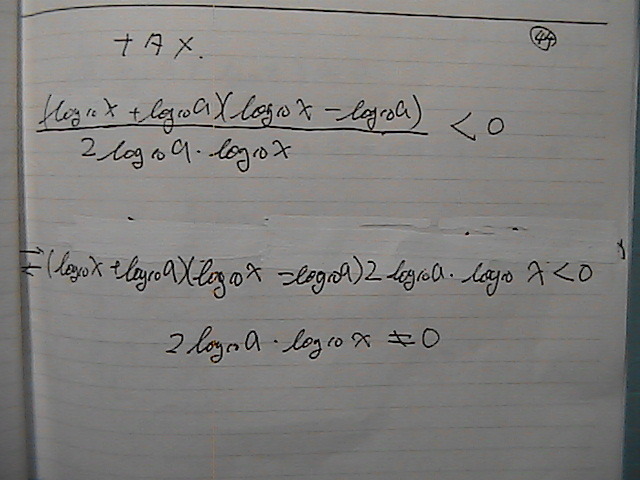 + A X.
44
(log₁₀x + log₁₀a)(log₁₀x - log₁₀a) / 2 log₁₀a · log₁₀x < 0
⇌ (log₁₀x + log₁₀a)(log₁₀x - log₁₀a) 2 log₁₀a · log₁₀x < 0
2 log₁₀a · log₁₀x ≠ 0